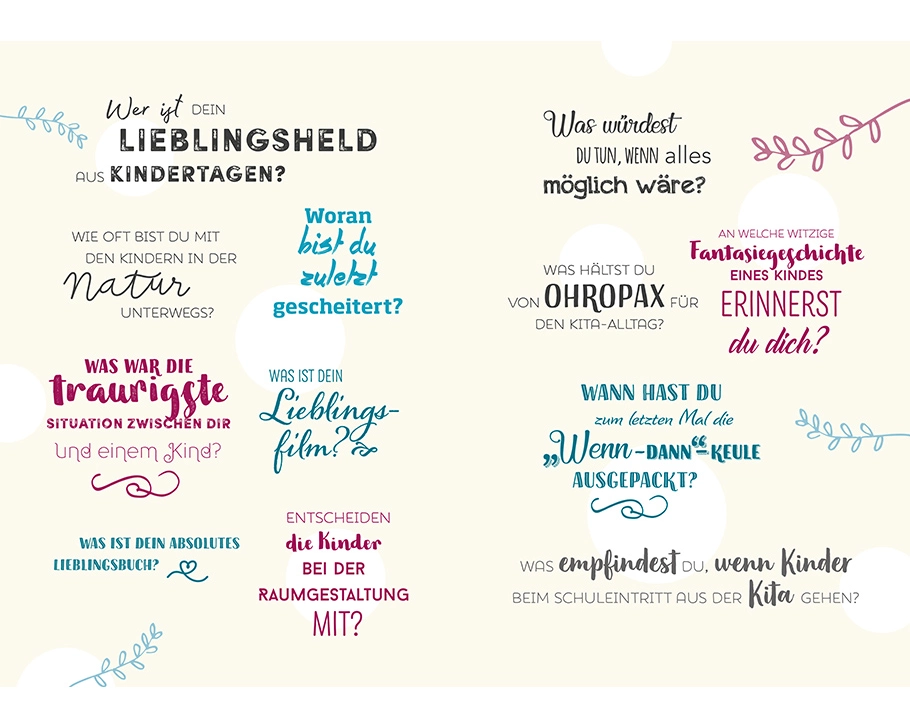 Wer ist DEIN
LIEBLINGSHELD
AUS KINDERTAGEN?
WIE OFT BIST DU MIT
DEN KINDERN IN DER
Natur
UNTERWEGS?
Woran
bist du
zuletzt
gescheitert?
WAS WAR DIE
traurigste
SITUATION ZWISCHEN DIR
und einem Kind?
WAS IST DEIN
Lieblings-
film?
WAS IST DEIN ABSOLUTES
LIEBLINGSBUCH?
ENTSCHEIDEN
die Kinder
BEI DER
RAUMGESTALTUNG
MIT?
Was würdest
DU TUN, WENN alles
möglich wäre?
WAS HÄLTST DU
VON OHROPAX FÜR
DEN KITA-ALLTAG?
AN WELCHE WITZIGE
Fantasiegeschichte
EINES KINDES
ERINNERST
du dich?
WANN HAST DU
zum letzten Mal die
„Wenn-DANN“-KEULE
AUSGEPACKT?
WAS empfindest DU, wenn Kinder
BEIM SCHULEINTRITT AUS DER Kita GEHEN?